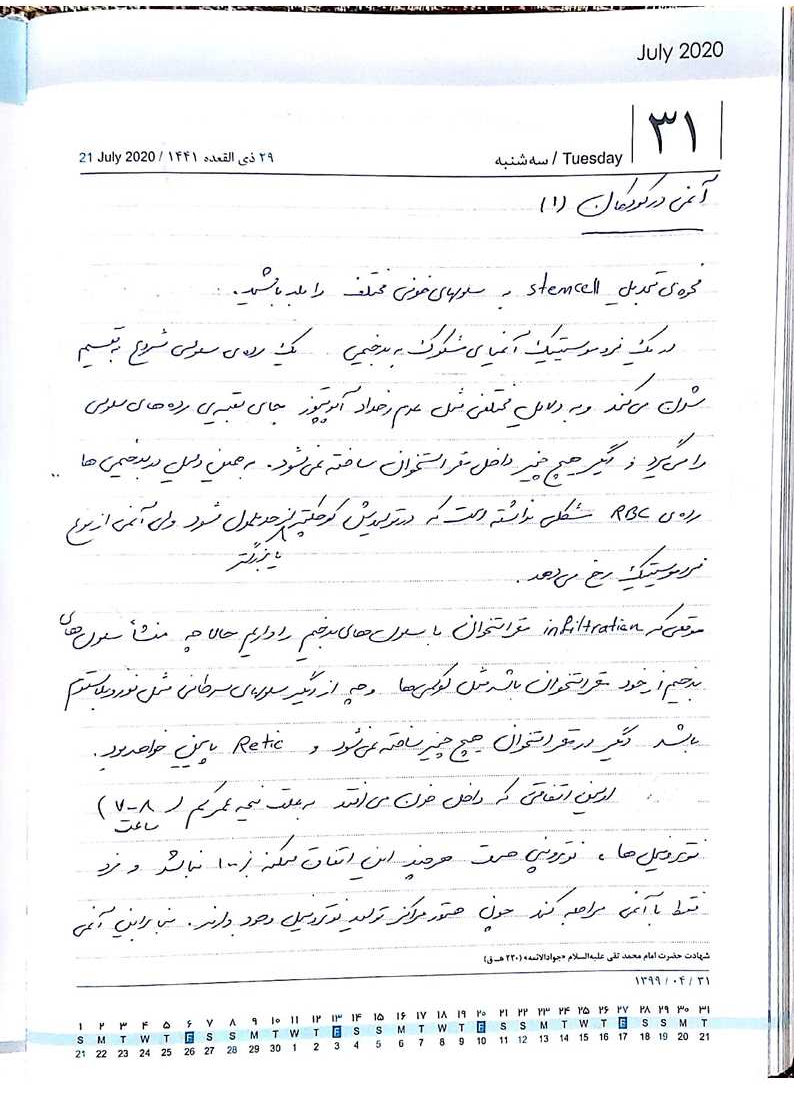 July 2020
۳۱
سه‌شنبه / Tuesday
۲۹ ذی القعده ۱۴۴۱ / 21 July 2020
آنمی در کودکان (۱)
نحوه‌ی تبدیل stem cell به سلولهای خونی مختلف را بلد باشید.
در یک نرموسیتیک آنمیای مشکوک به بدخیمی یک رده‌ی سلولی شروع به تقسیم
شدن می‌کند و به دلایل مختلفی مثل عدم رخداد آپوپتوز جای بقیه‌ی رده‌های سلولی
را می‌گیرد و دیگر هیچ چیز داخل مغز استخوان ساخته نمی‌شود. به همین دلیل در بدخیمی ها
رده‌ی RBC مشکلی نداشته است که در تولیدش کوچکتر از حد معمول شود ولی آنمی از نوع
یا بزرگتر
نرموسیتیک رخ می‌دهد.
موقعی که infiltration مغز استخوان با سلول‌های بدخیم را داریم حالا چه منشأ سلول‌های
بدخیم از خود مغز استخوان باشد مثل لوکمی‌ها و چه از دیگر سلولهای سرطانی مثل نوروبلاستوم
باشد دیگر در مغز استخوان هیچ چیز ساخته نمی‌شود و Retic پایین خواهد بود.
اولین اتفاقی که داخل خون می‌افتد به علت نیمه عمر کم (۸-۷
ساعت)
نوتروفیل‌ها، نوتروپنی هست هرچند این اتفاق ممکنه زود نباشد و فرد
فقط با آنمی مراجعه کند چون هنوز مراکز تولید نوتروفیل وجود دارند. بنابراین آنمی
شهادت حضرت امام محمد تقی علیه‌السلام «جوادالائمه» (۲۲۰ هـ ق)
۱۳۹۹/۰۴/۳۱
۱ ۲ ۳ ۴ ۵ ۶ ۷ ۸ ۹ ۱۰ ۱۱ ۱۲ ۱۳ ۱۴ ۱۵ ۱۶ ۱۷ ۱۸ ۱۹ ۲۰ ۲۱ ۲۲ ۲۳ ۲۴ ۲۵ ۲۶ ۲۷ ۲۸ ۲۹ ۳۰ ۳۱
S M T W T F S S M T W T F S S M T W T F S S M T W T F S S M T
21 22 23 24 25 26 27 28 29 30 1 2 3 4 5 6 7 8 9 10 11 12 13 14 15 16 17 18 19 20 21